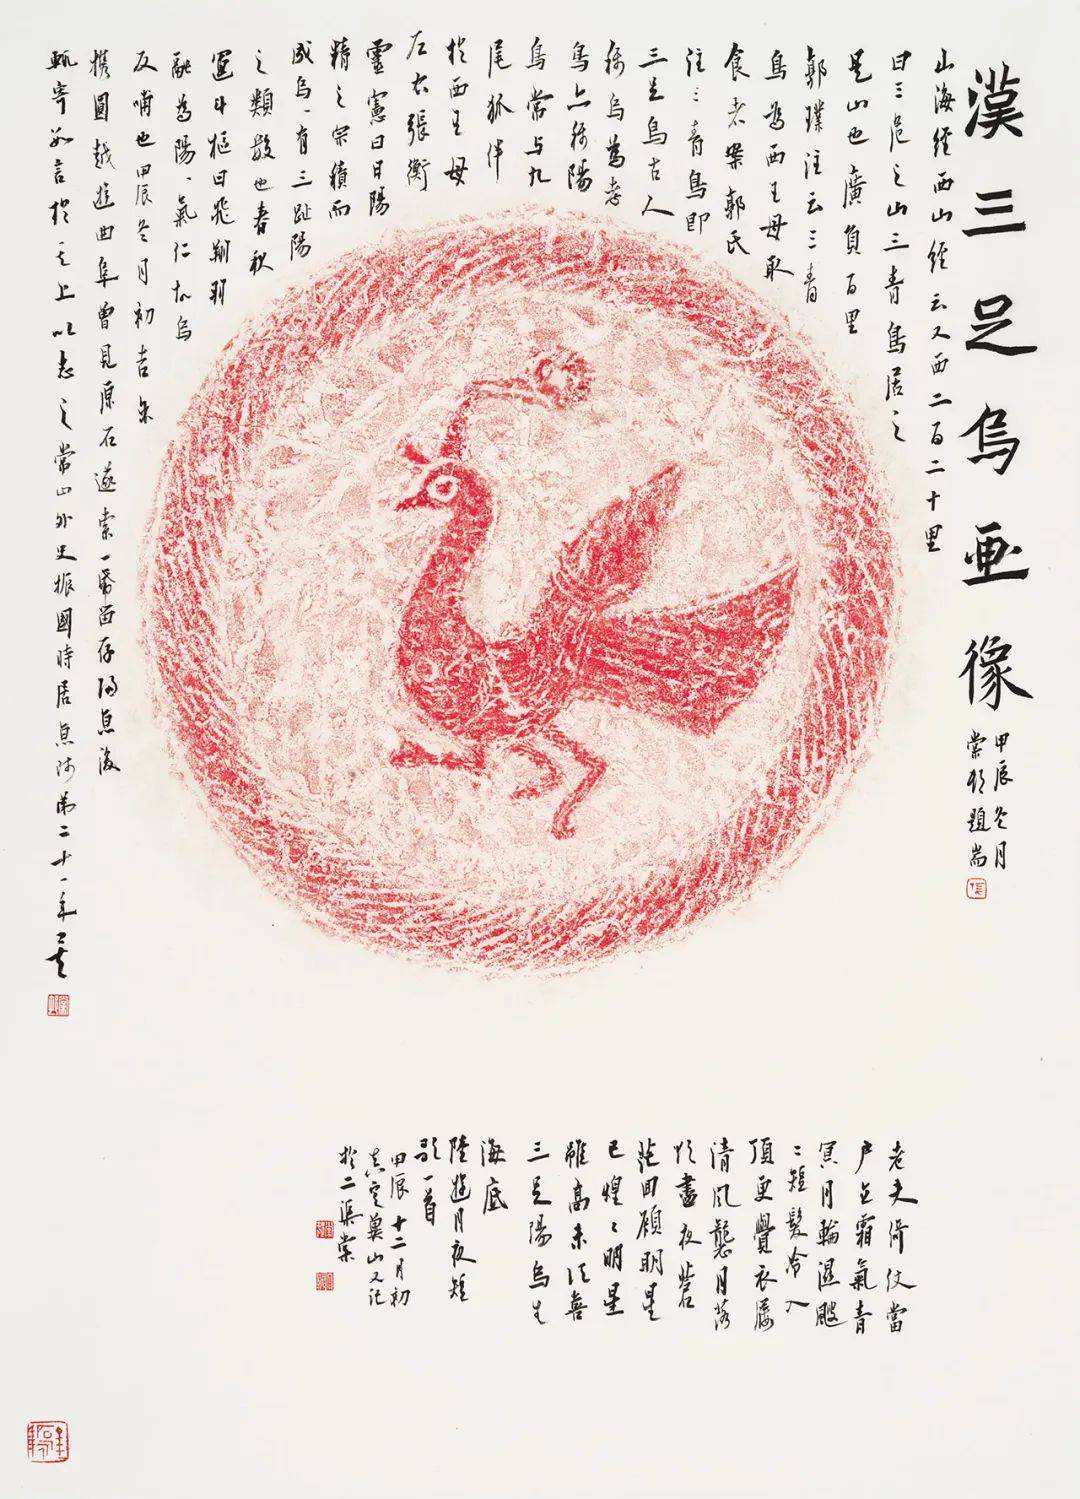 漢三足烏画像
甲辰冬月
棠邨題耑
山海經西山經云又西二百二十里
曰三危之山三青鳥居之
是山也廣員百里
郭璞注云三青
鳥為西王母取
食者案郭氏
注三青鳥即
三足烏古人
称烏為孝
鳥亦称陽
烏常与九
尾狐伴
於西王母
左右張衡
靈憲曰日陽
精之宗積而
成烏烏有三趾陽
之類數也春秋
運斗樞曰飛翔羽
翮為陽陽氣仁故烏
反哺也甲辰冬月初吉余
携圓越遊曲阜曾見原石遂索一帋留存
輒寄於其上以志之常山外史振國時居京師第二十一年矣
老夫倚仗當
戶立霜氣青
冥月輪濕颼
颼短髮冷入
頂更覺衣屨
清風襲月落
燈盡夜蒼
茫回顧明星
已煌煌明星
雖高未須喜
三足陽烏生
海底
陸遊月夜短
歌一首
甲辰十二月初
真定冀山又记
於二渠棠